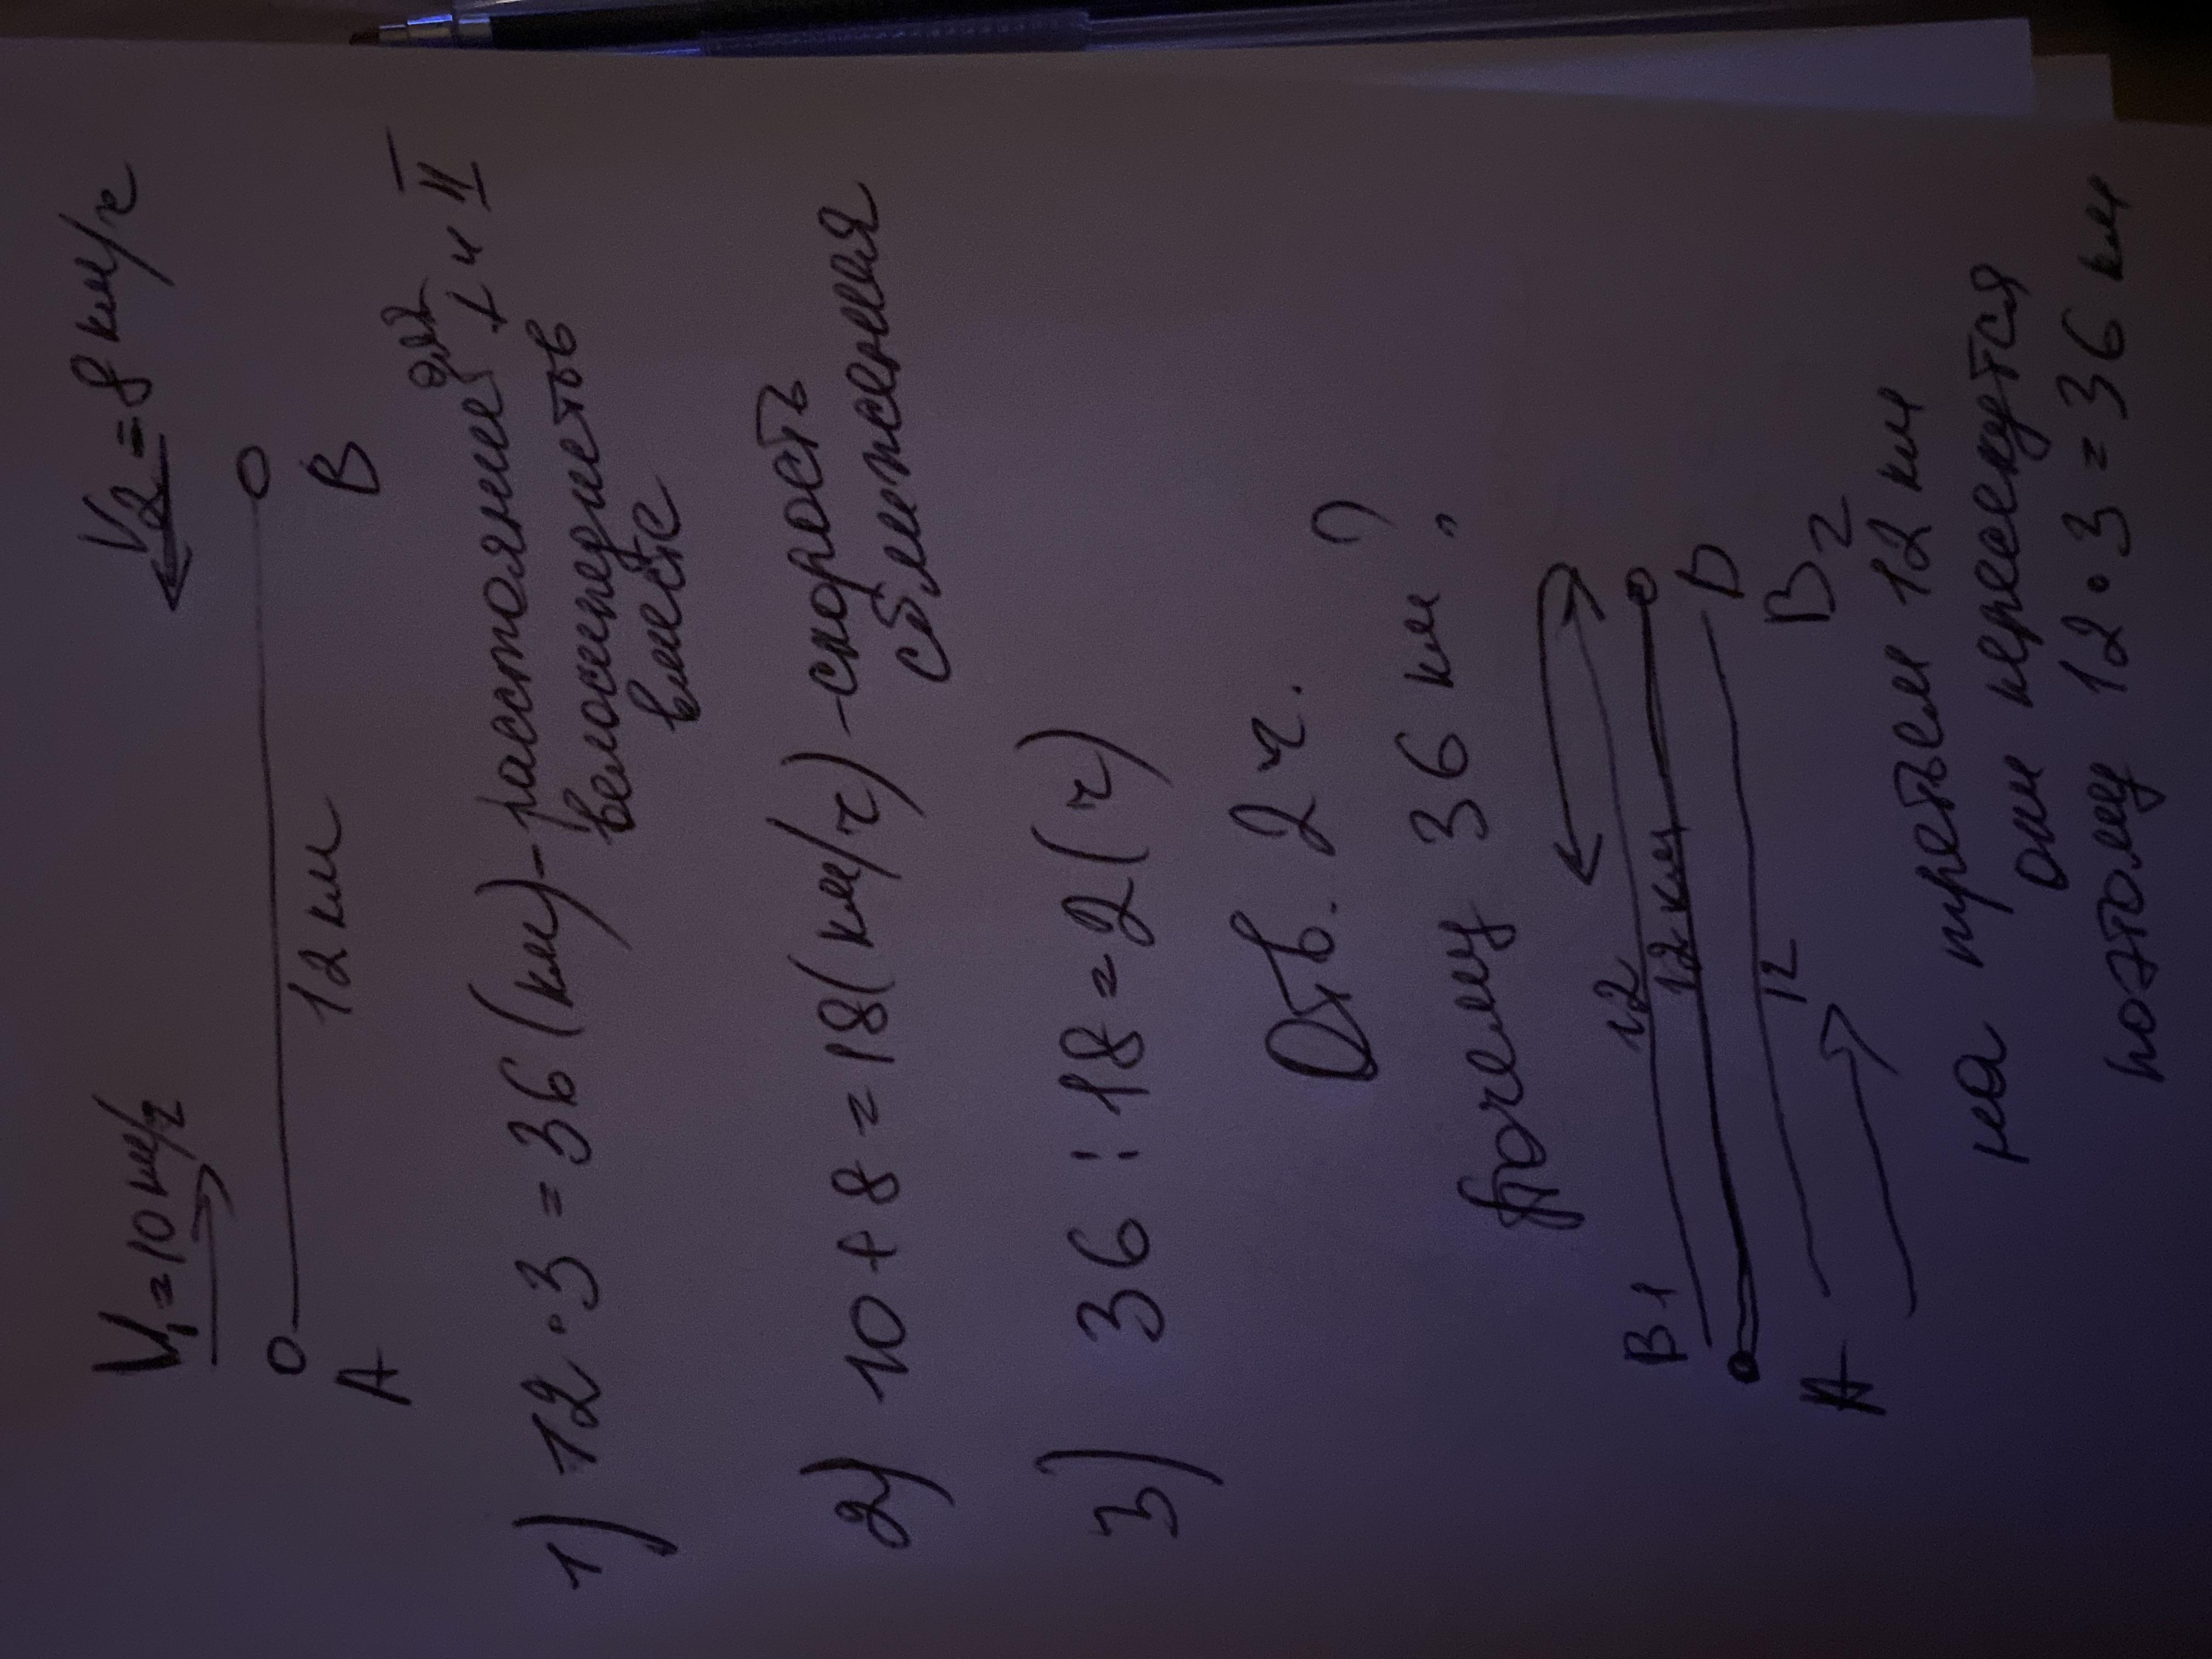 V₁=10 км/ч V₂=8 км/ч
A 12 км B
1) 12·3=36(км)-расстояние для I и II
велосипедистов
вместе
2) 10+8=18(км/ч)-скорость
сближения
3) 36:18=2(ч)
Отв. 2ч.
почему 36 км?
B1 12
12 км
A 12 B
B2
на третьем 12 км
они пересекутся
поэтому 12·3=36 км